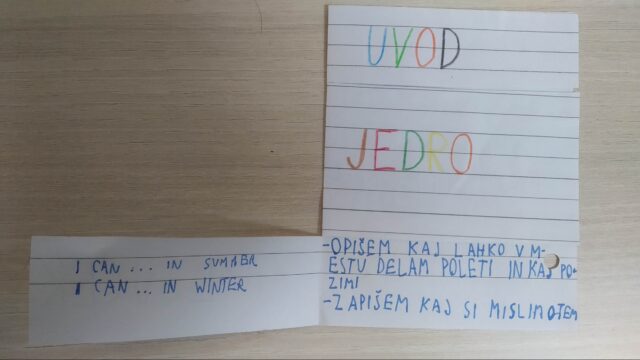 UVOD
JEDRO
I CAN ... IN SUMMER
I CAN ... IN WINTER
-OPIŠEM KAJ LAHKO V M-
ESTU DELAM POLETI IN KAJ PO-
ZIMI
-ZAPIŠEM KAJ SI MISLIM O TEM